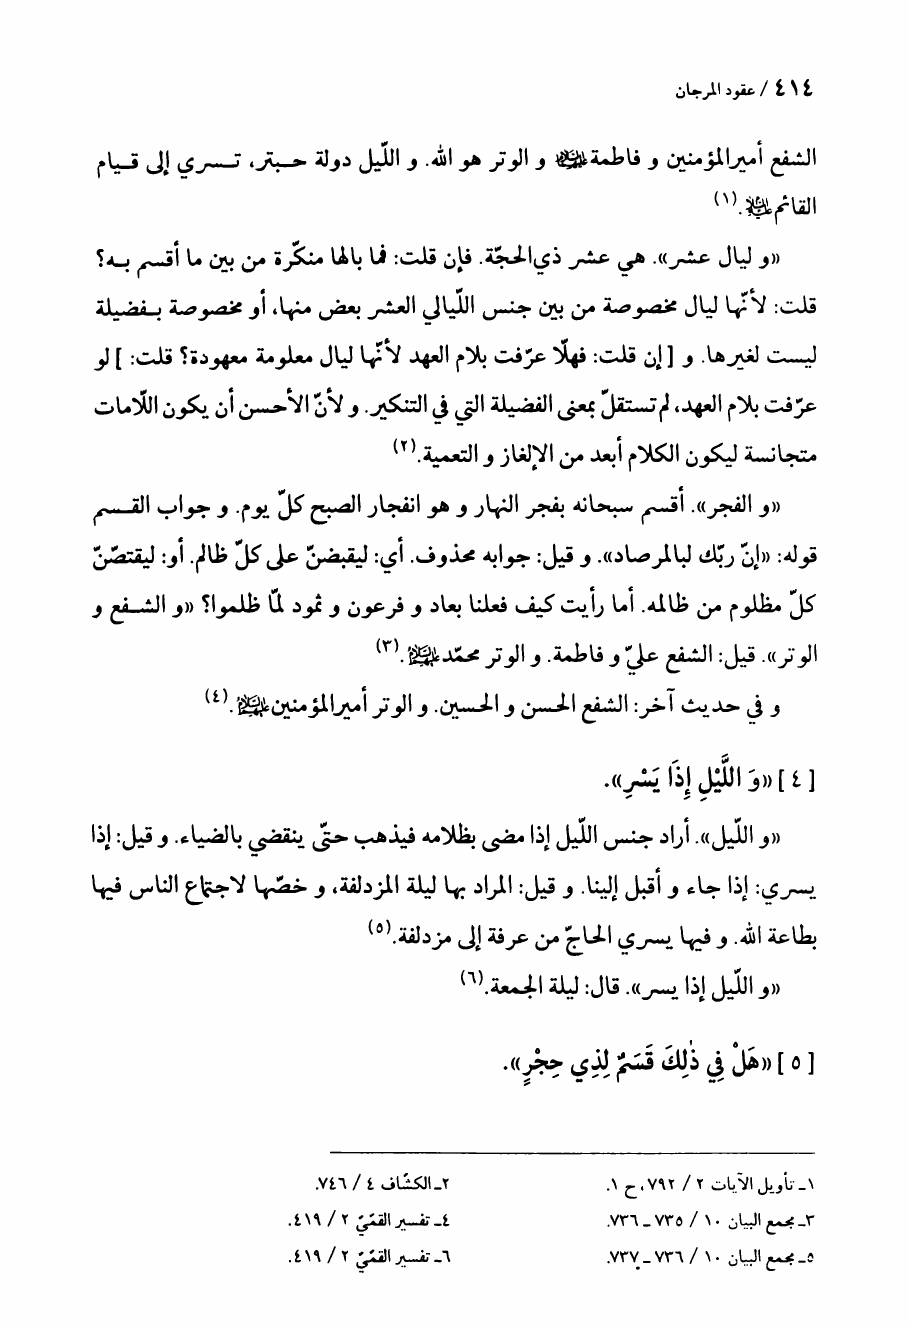 ٤١٤ / عقود المرجان
الشفع أميرالمؤمنين و فاطمة عليهما السلام و الوتر هو الله. و اللّيل دولة حبتر، تسري إلى قيام
القائم عليه السلام.(١)
«و ليال عشر». هي عشر ذي‌الحجّة. فإن قلت: فما بالها منكّرة من بين ما أقسم به؟
قلت: لأنّها ليال مخصوصة من بين جنس اللّيالي العشر بعض منها، أو مخصوصة بفضيلة
ليست لغيرها. و [إن قلت: فهلّا عرّفت بلام العهد لأنّها ليال معلومة معهودة؟ قلت: ] لو
عرّفت بلام العهد، لم تستقلّ بمعنى الفضيلة التي في التنكير. و لأنّ الأحسن أن يكون اللّامات
متجانسة ليكون الكلام أبعد من الإلغاز و التعمية.(٢)
«و الفجر». أقسم سبحانه بفجر النهار و هو انفجار الصبح كلّ يوم. و جواب القسم
قوله: «إنّ ربّك لبالمرصاد». و قيل: جوابه محذوف. أي: ليقبضنّ على كلّ ظالم. أو: ليقتصّنّ
كلّ مظلوم من ظالمه. أما رأيت كيف فعلنا بعاد و فرعون و ثمود لمّا ظلموا؟ «و الشفع و
الوتر». قيل: الشفع عليّ و فاطمة. و الوتر محمّد عليهم السلام.(٣)
و في حديث آخر: الشفع الحسن و الحسين. و الوتر أميرالمؤمنين عليهم السلام.(٤)
[ ٤ ] «وَ اللَّيْلِ إِذَا يَسْرِ».
«و اللّيل». أراد جنس اللّيل إذا مضى بظلامه فيذهب حتّى ينقضي بالضياء. و قيل: إذا
يسري: إذا جاء و أقبل إلينا. و قيل: المراد بها ليلة المزدلفة، و خصّها لاجتماع الناس فيها
بطاعة الله. و فيها يسري الحاجّ من عرفة إلى مزدلفة.(٥)
«و اللّيل إذا يسر». قال: ليلة الجمعة.(٦)
[ ٥ ] «هَلْ فِي ذٰلِكَ قَسَمٌ لِذِي حِجْرٍ».
١ـ تأويل الآيات ٢ / ٧٩٢، ح ١. ٢ـ الكشّاف ٤ / ٧٤٦.
٣ـ مجمع البيان ١٠ / ٧٣٥ ـ ٧٣٦. ٤ـ تفسير القمّيّ ٢ / ٤١٩.
٥ـ مجمع البيان ١٠ / ٧٣٦ ـ ٧٣٧. ٦ـ تفسير القمّيّ ٢ / ٤١٩.